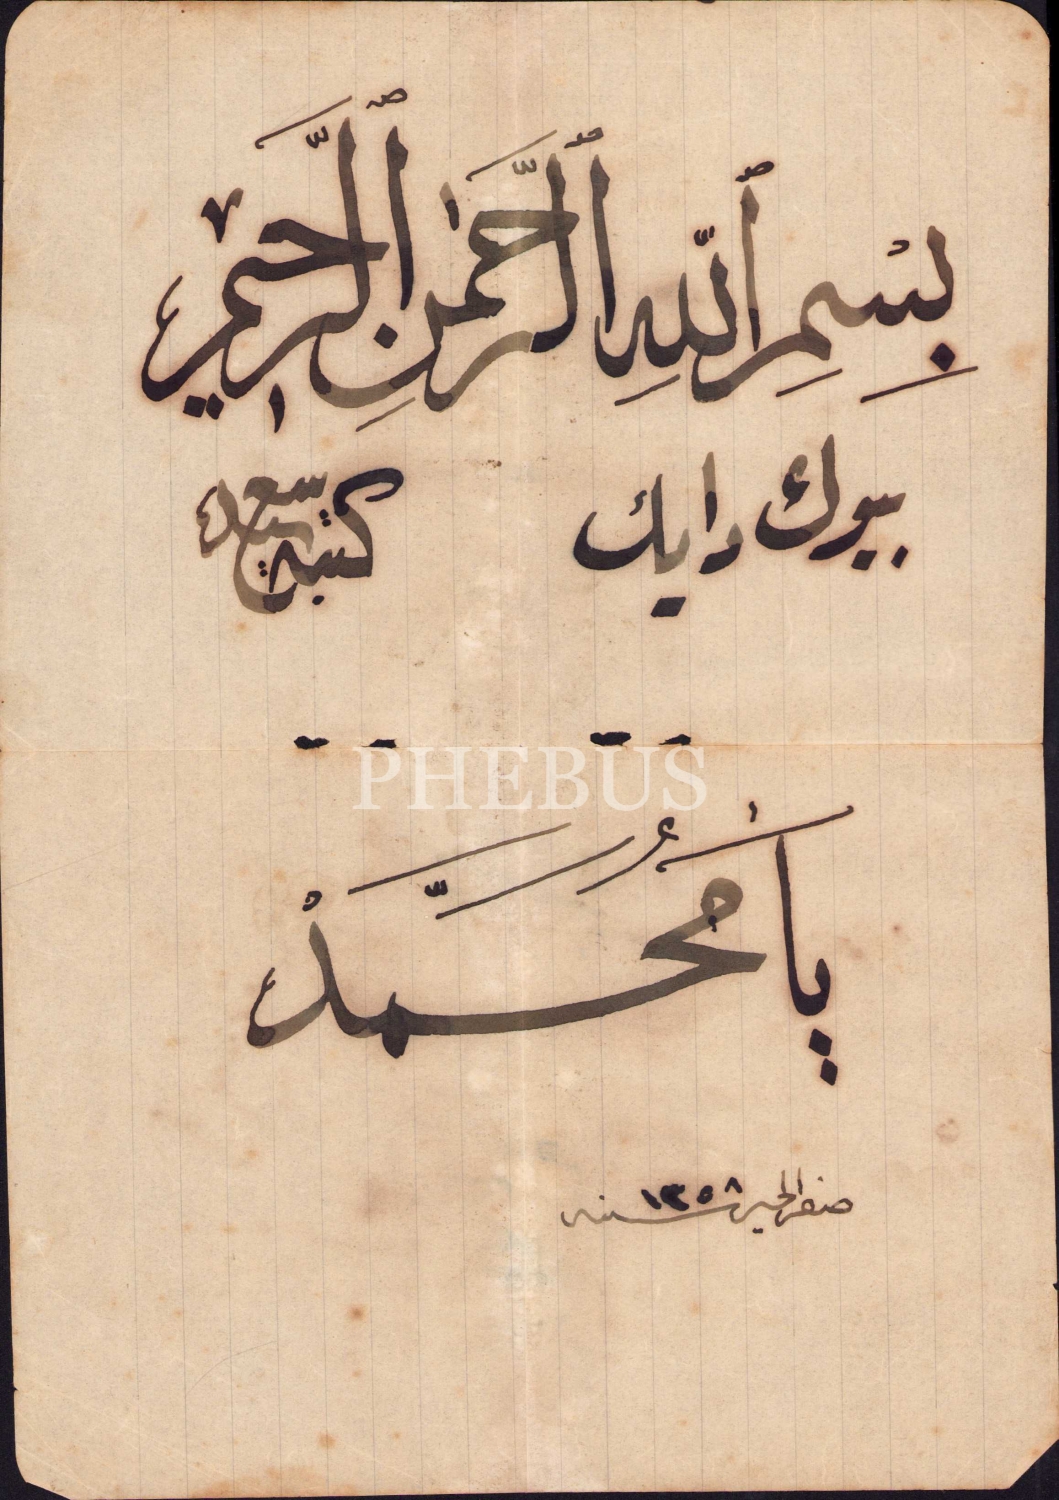 بِسْمِ ٱللّٰهِ ٱلرَّحْمٰنِ ٱلرَّحِيمِ
بيوك دايك كتبه سعد
PHEBUS
يا مُحَمَّدْ
صفر الخير سنه ١٣٥٨